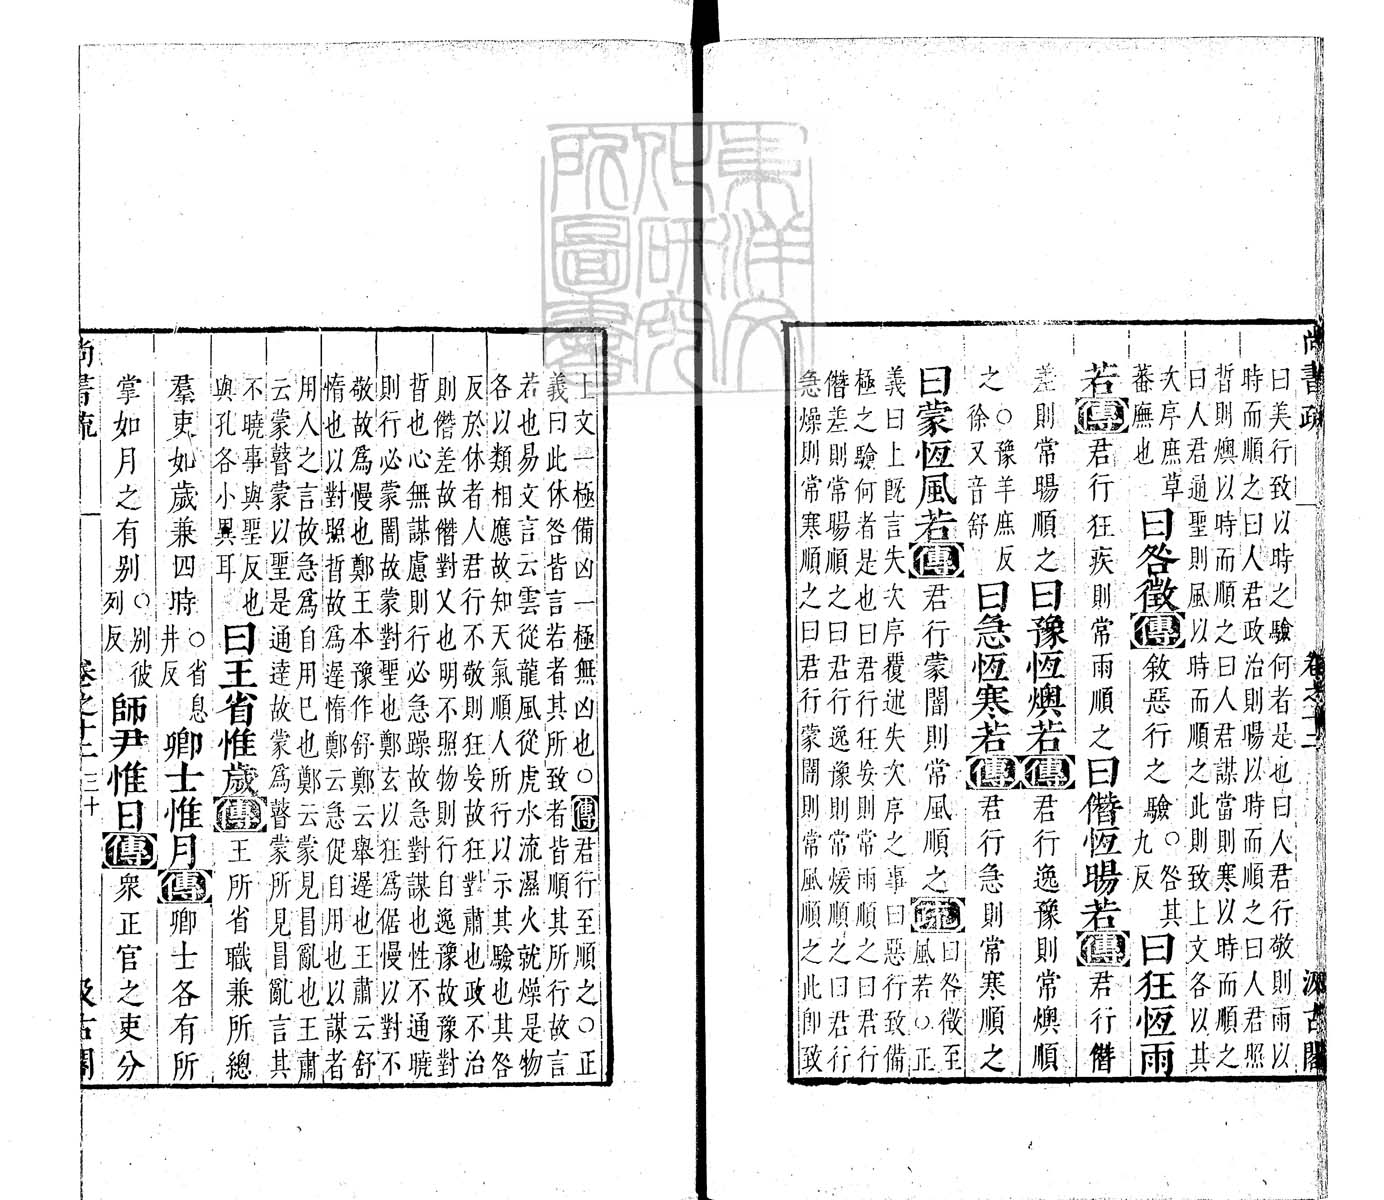 尚書疏　卷之十二　汲古閣
曰美行致以時之驗何者是也曰人君行敬則雨以
時而順之曰人君政治則暘以時而順之曰人君照
晢則燠以時而順之曰人君謀當則寒以時而順之
曰人君通聖則風以時而順之此則致上文各以其
次序庶草
蕃廡也
曰咎徵傳敘惡行之驗
○咎其
九反
曰狂恆雨
若傳君行狂疾則常雨順之曰僭恆暘若傳君行僭
差則常暘順之曰豫恆燠若傳君行逸豫則常燠順
之
○豫羊庶反
徐又音舒
曰急恆寒若傳君行急則常寒順之
曰蒙恆風若傳君行蒙闇則常風順之疏
曰咎徵至
風若○正
義曰上旣言失次序覆述失次序之事曰惡行致備
極之驗何者是也曰君行狂妄則常雨順之曰君行
僭差則常暘順之曰君行逸豫則常煖順之曰君行
急燥則常寒順之曰君行蒙闇則常風順之此卽致
上文一極備凶一極無凶也○傳君行至順之○正
義曰此休咎皆言若者其所致者皆順其所行故言
若也易文言云雲從龍風從虎水流濕火就燥是物
各以類相應故知天氣順人所行以示其驗也其咎
反於休者人君行不敬則狂妄故狂對肅也政不治
則僭差故僭對乂也明不照物則行自逸豫故豫對
晢也心無謀慮則行必急躁故急對謀也性不通曉
則行必蒙闇故蒙對聖也鄭玄以狂爲倨慢以對不
敬故爲慢也鄭王本豫作舒鄭云舉遲也王肅云舒
惰也以對照晢故爲遲惰鄭云急促自用也以謀者
用人之言故急爲自用已也鄭云蒙見冒亂也王肅
云蒙瞽蒙以聖是通達故蒙爲瞽蒙所見冒亂言其
不曉事與聖反也
與孔各小異耳
曰王省惟歲傳王所省職兼所總
羣吏如歲兼四時
○省息
井反
卿士惟月傳卿士各有所
掌如月之有別
○別彼
列反
師尹惟日傳衆正官之吏分
尚書疏　卷之十二　三十　汲古閣
東洋文
化研究
所圖書